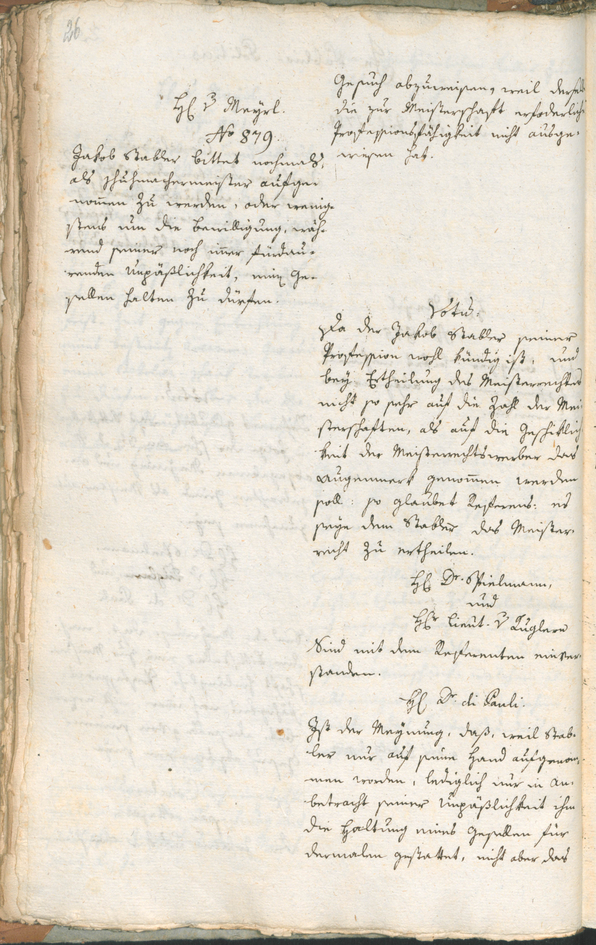 26
H. v. Meÿrl.
No 879.
Jakob Stabler bittet nochmals,
als Schuhmachermeister aufge-
nommen zu werden, oder wenig-
stens um die Bewilligung, wäh-
rend seiner noch immer fürdau-
renden Unpäßlichkeit, einen Ge-
sellen halten zu dürfen.
Gesuch abzuweisen, weil derselbe
die zur Meisterschaft erforderliche
Professionsfähigkeit nicht ausge-
wiesen hat.
Votu.
Da der Jakob Stabler seiner
Profession wohl kündig ist, und
bey Ertheilung des Meisterrechtes
nicht so sehr auf die Zahl der Mei-
sterschaften, als auf die Geschiklich-
keit der Meisterrechtswerber das
Augenmerk genommen werden
soll: so glaubet Referens: es
seye dem Stabler das Meister-
recht zu ertheilen.
H. Dr. Spielmann,
und
H. Lieut. v. Kuglern
Sind mit dem Referenten einver-
standen.
H. Dr. di Pauli.
Ist der Meynung, daß, weil Stab-
ler nur auf seine Hand aufgenom-
men worden, lediglich nur in An-
betracht seiner Unpäßlichkeit ihm
die Haltung eines Gesellen für
dermalen gestattet, nicht aber das